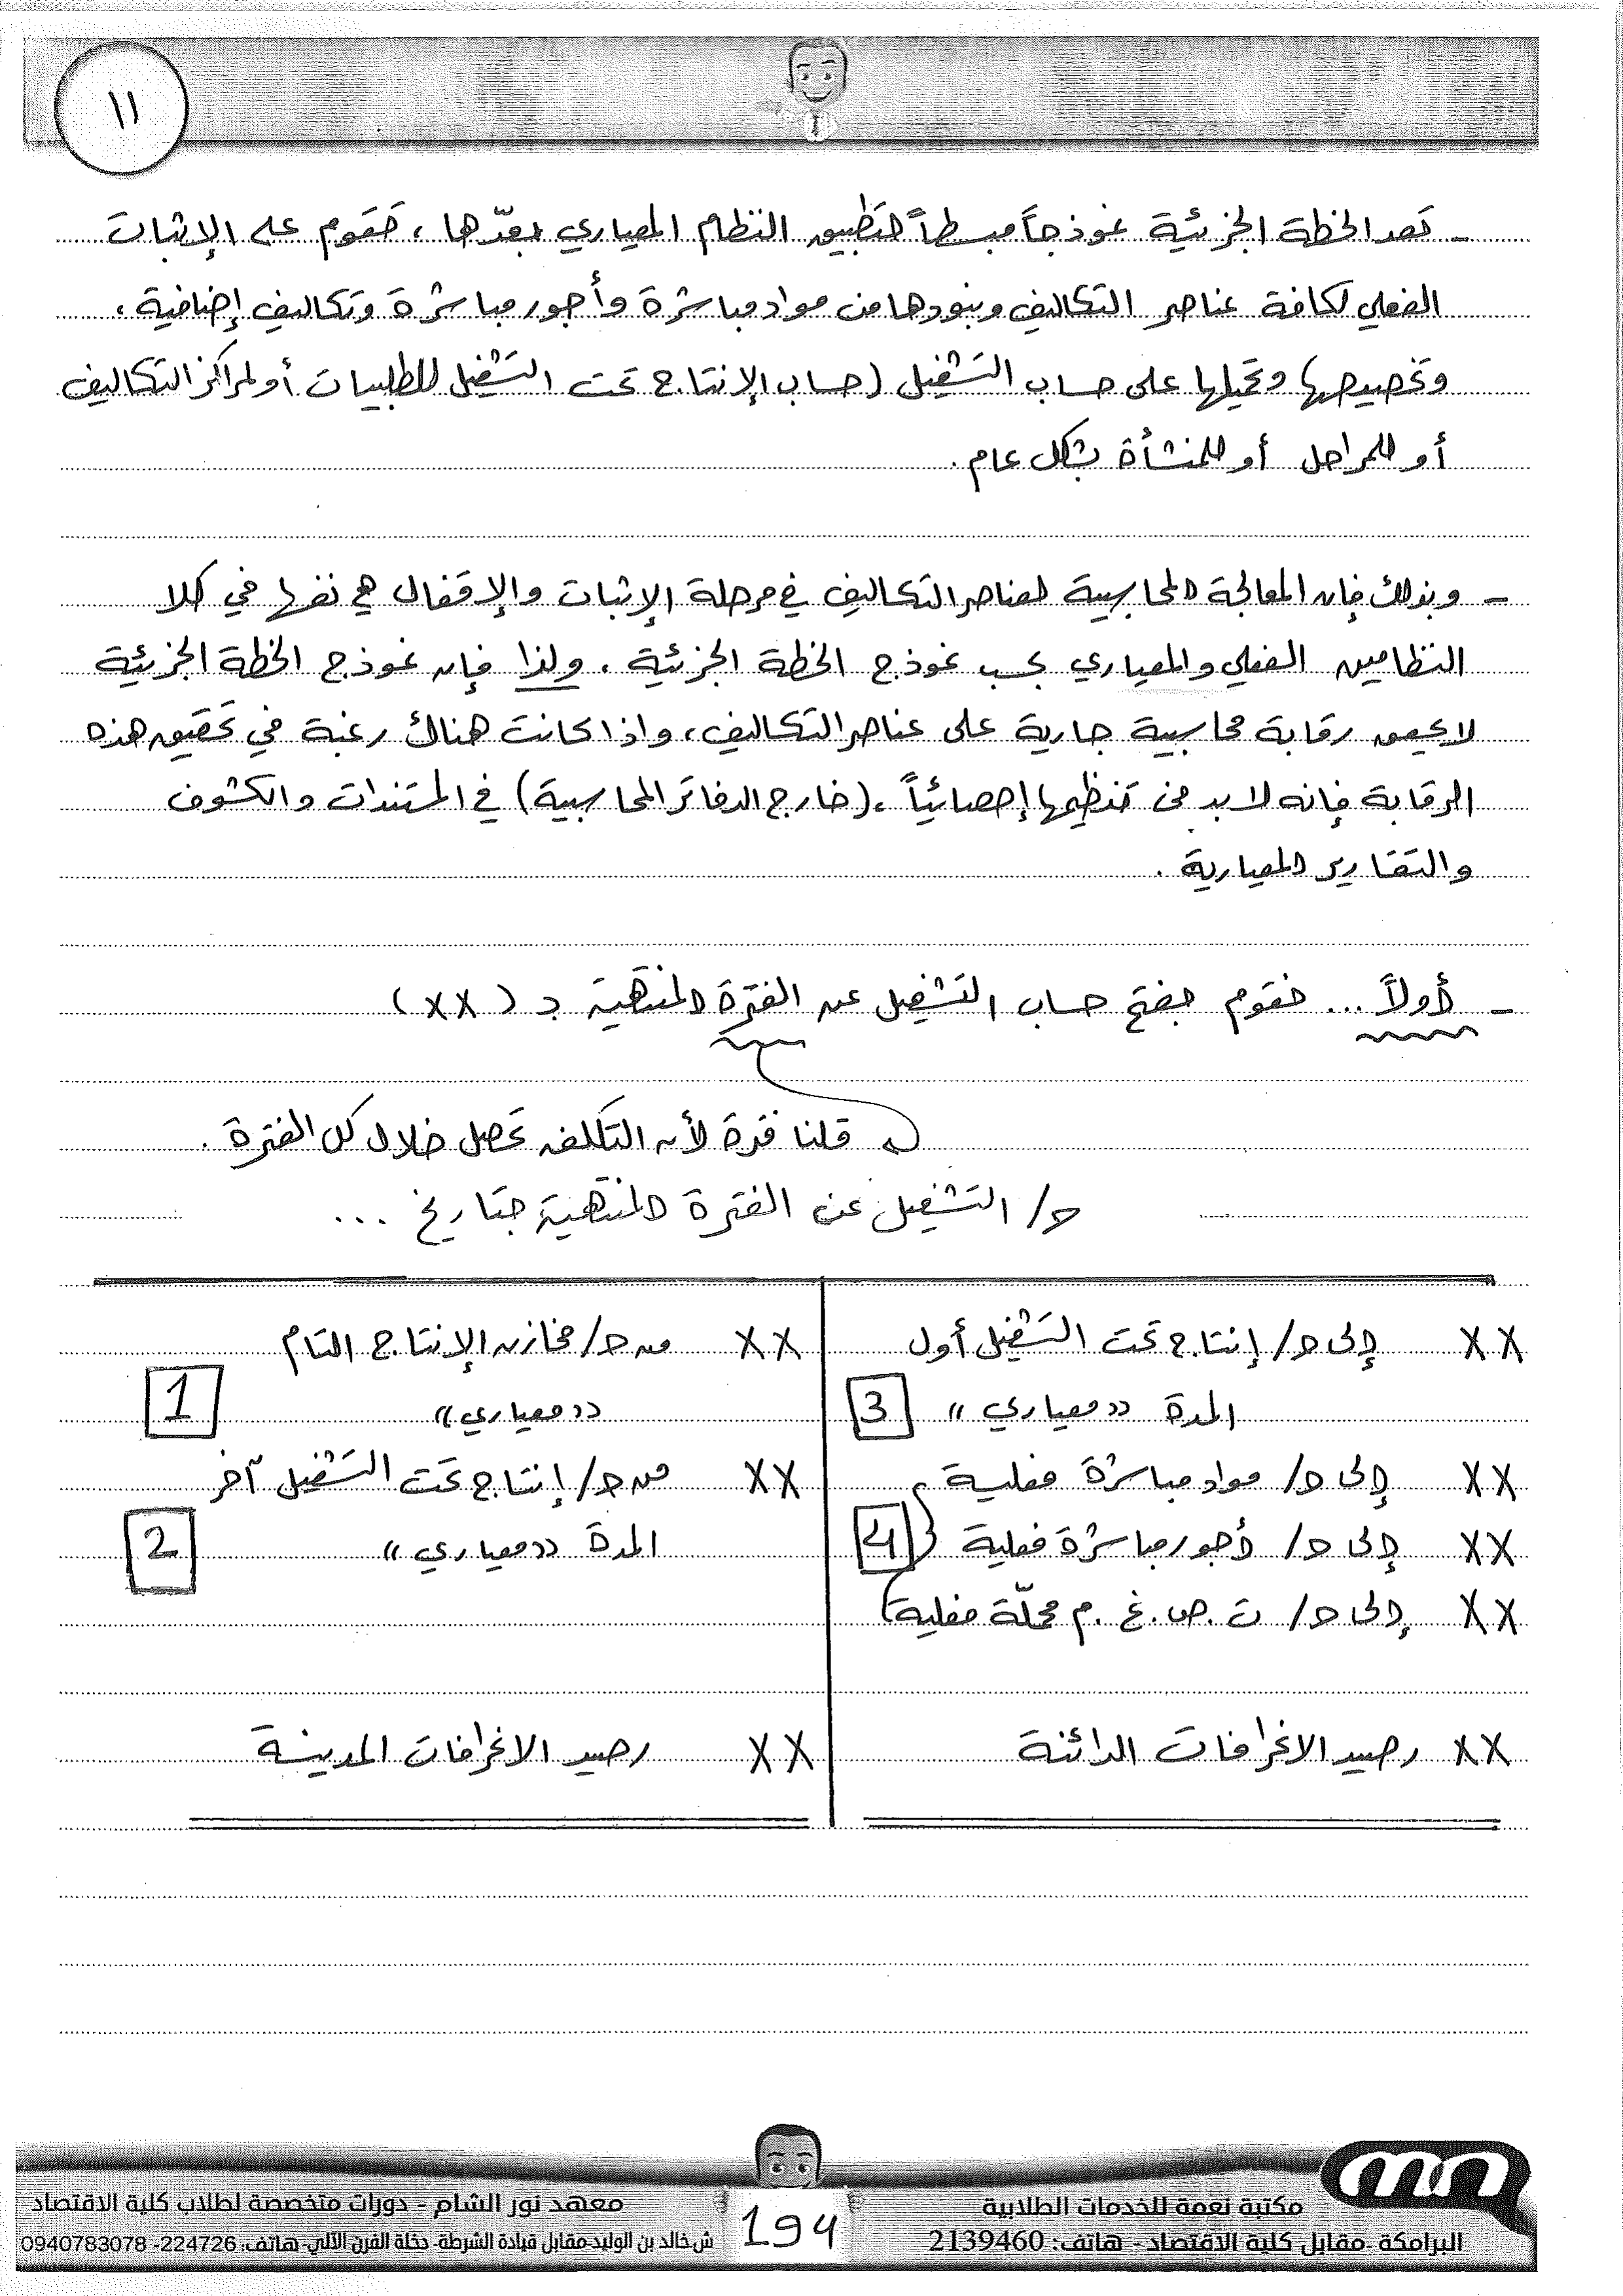 ١١
- تعد الخطة الجزئية نموذجاً مبسطاً لتطبيق النظام المعياري بعدّها، تقوم على الإثبات
الفعلي لكافة عناصر التكاليف وبنودها من مواد مباشرة وأجور مباشرة وتكاليف إضافية،
وتخصيصها وتحميلها على حساب التشغيل (حساب الإنتاج تحت التشغيل للطلبيات أو لمراكز التكاليف
أو للمراحل أو للمنشأة بشكل عام.
- وبذلك فإن المعالجة المحاسبية لعناصر التكاليف في مرحلة الإثبات والإقفال هي نفسها في كلا
النظامين الفعلي والمعياري بحسب نموذج الخطة الجزئية. ولذا فإن نموذج الخطة الجزئية
لا يحقق رقابة محاسبية جارية على عناصر التكاليف، واذا كانت هناك رغبة في تحقيق هذه
الرقابة فإنه لا بد من تنظيمها إحصائياً، (خارج الدفاتر المحاسبية) في المستندات والكشوف
والتقارير المعيارية.
- أولاً ... نقوم بفتح حساب التشغيل عن الفترة المنتهية بـ (××)
قلنا فترة لأن التكلفة تحصل خلال كل الفترة.
حـ/ التشغيل عن الفترة المنتهية بتاريخ ...
×× إلى حـ/ إنتاج تحت التشغيل أول
المدة ((معياري)) 3
×× إلى حـ/ مواد مباشرة فعلية
×× إلى حـ/ أجور مباشرة فعلية 4
×× إلى حـ/ ت.ص.غ.م محملّة فعلية
×× رصيد الانحرافات الدائنة
×× من حـ/ مخازن الإنتاج التام
((معياري)) 1
×× من حـ/ إنتاج تحت التشغيل آخر
المدة ((معياري)) 2
×× رصيد الانحرافات المدينة
مكتبة نعمة للخدمات الطلابية
البرامكة -مقابل كلية الاقتصاد - هاتف: 2139460
194
معهد نور الشام - دورات متخصصة لطلاب كلية الاقتصاد
ش خالد بن الوليد-مقابل قيادة الشرطة- دخلة الفرن الآلي- هاتف: 224726- 0940783078